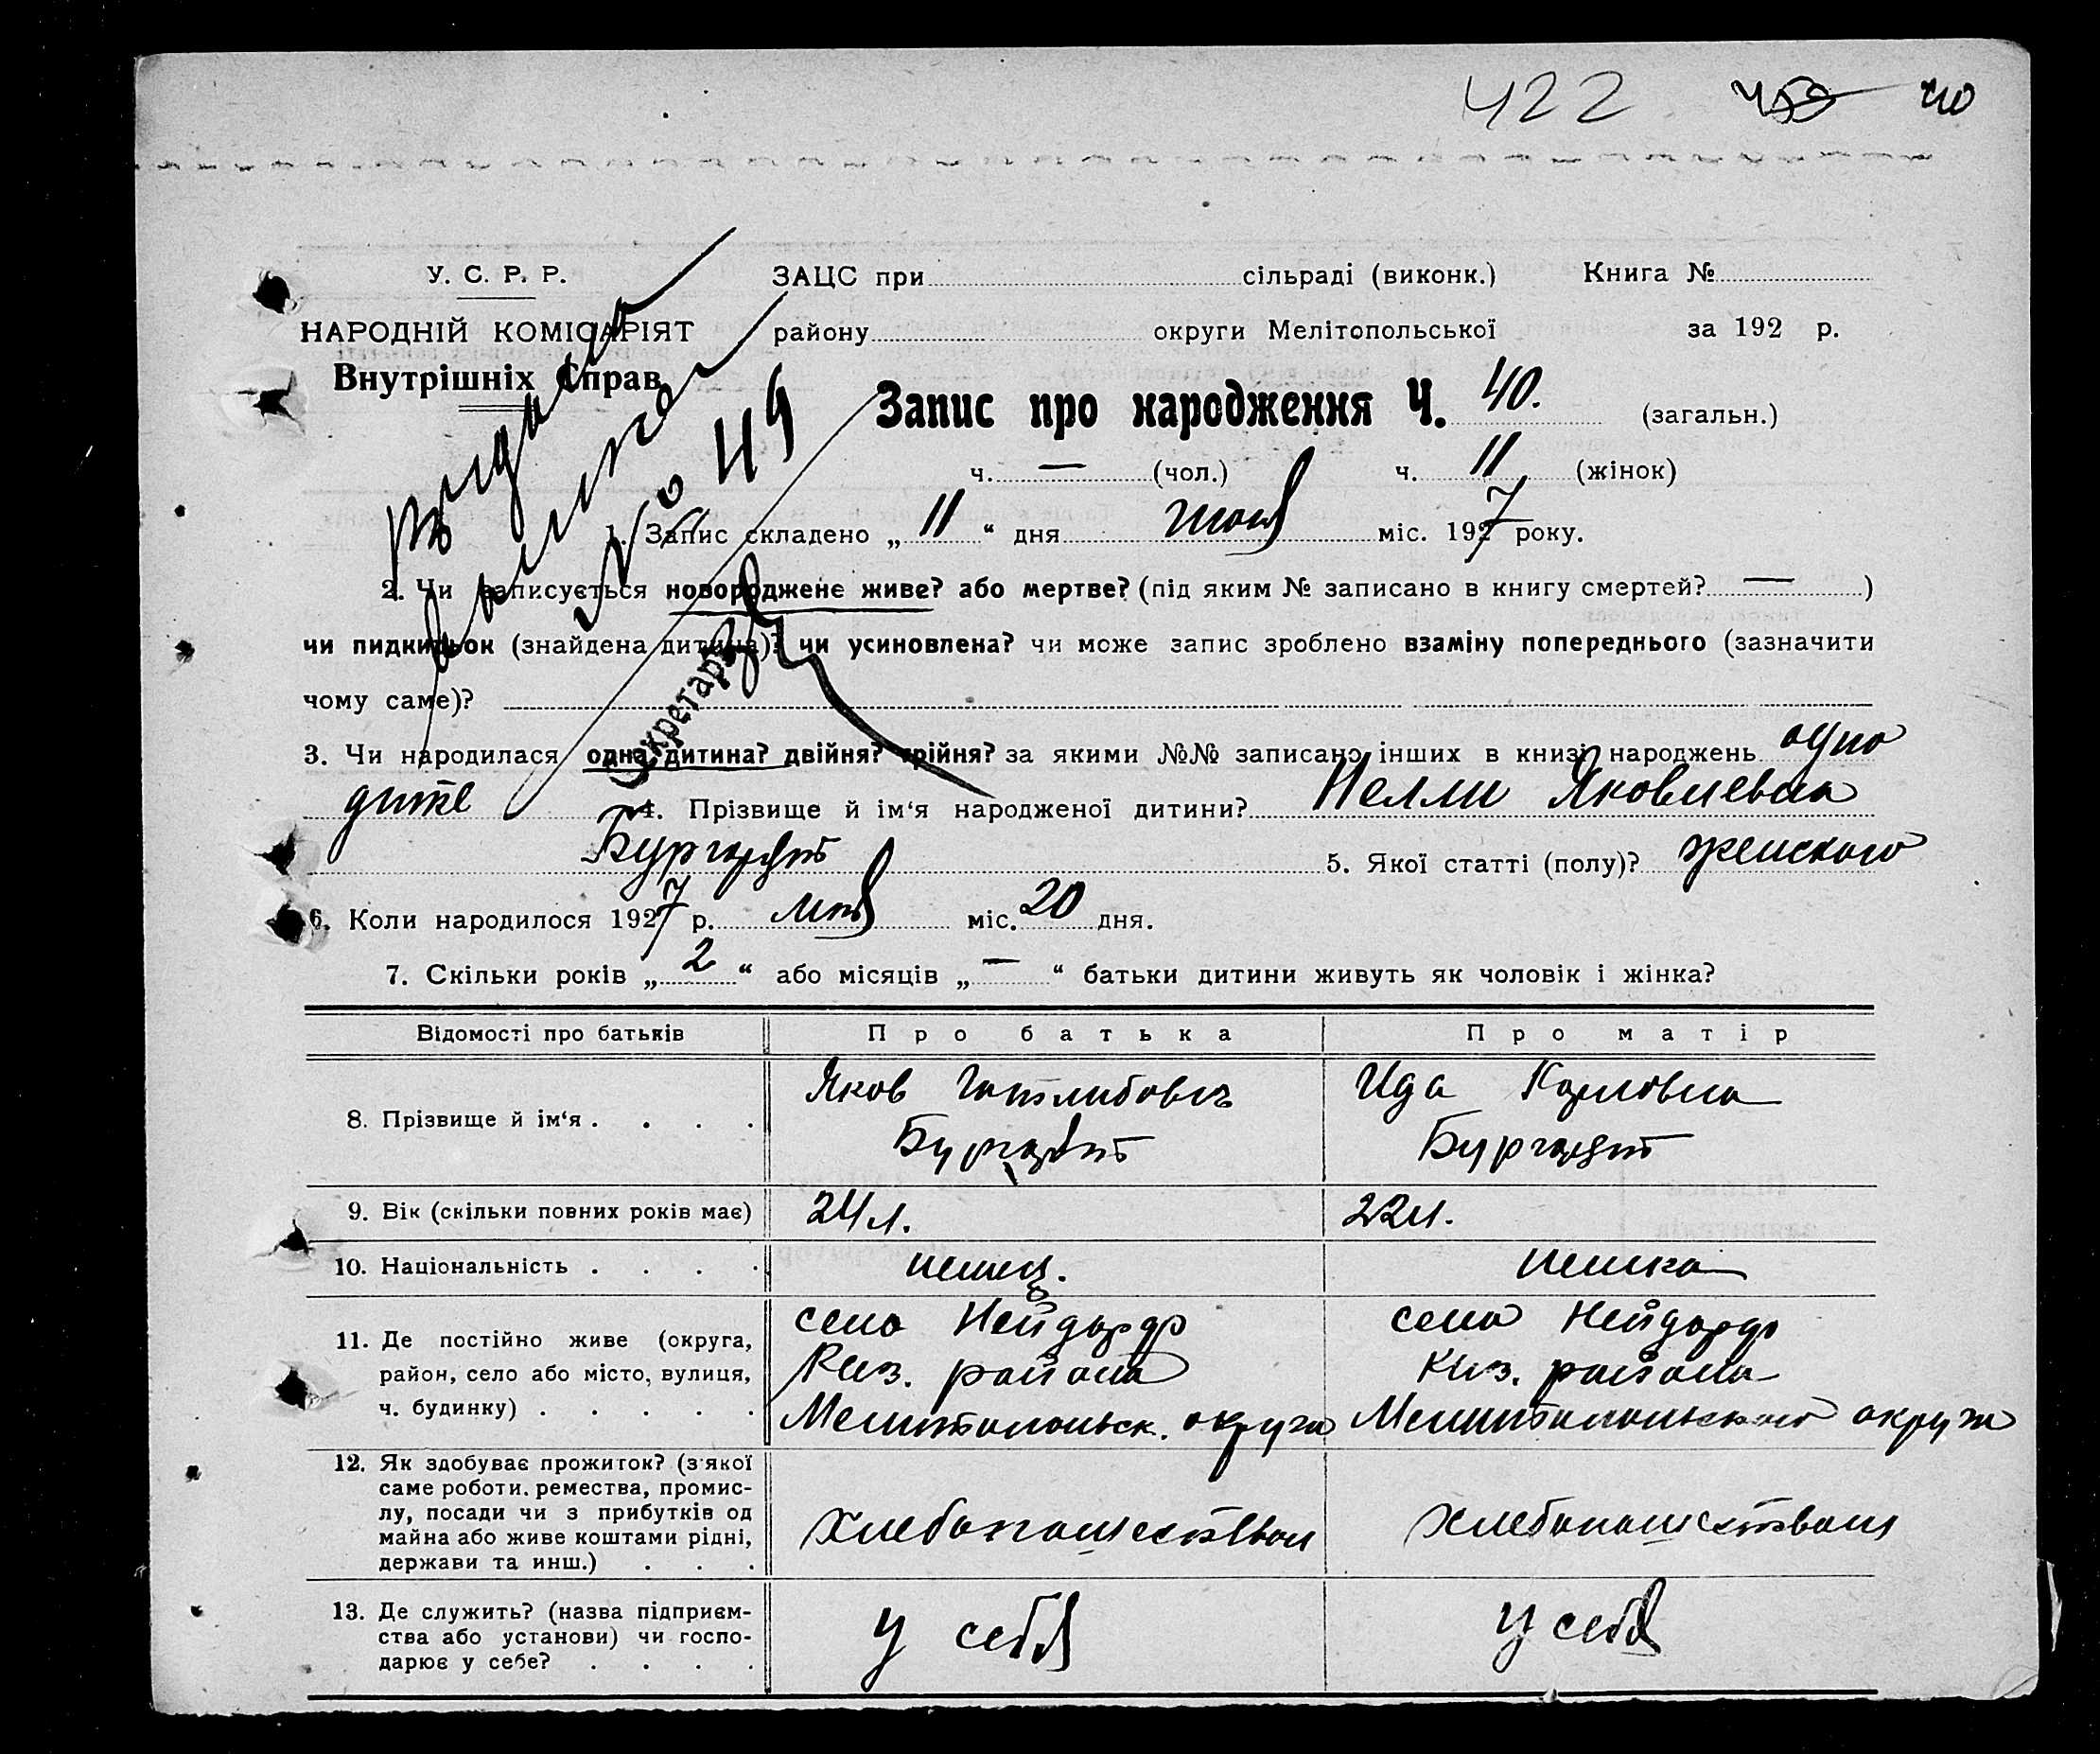 422 40
У. С. Р. Р. ЗАЦС при сільраді (виконк.) Книга №
НАРОДНІЙ КОМІСАРІЯТ району округи Мелітопольської за 192 р.
Внутрішніх Справ
Запис про народження Ч. 40. (загальн.)
ч. — (чол.) ч. 11 (жінок)
Выдана
выписка
No 49
Секретарь
1. Запис складено „ 11 “ дня июня міс. 1927 року.
2. Чи записується новороджене живе? або мертве? (під яким № записано в книгу смертей? — )
чи пидкидьок (знайдена дитина)? чи усиновлена? чи може запис зроблено взаміну попереднього (зазначити
чому саме)?
3. Чи народилася одна дитина? двійня? трійня? за якими №№ записано інших в книзі народжень одно
дите 4. Прізвище й ім‘я народженої дитини? Нелли Яковлевна
Бургардт 5. Якої статті (полу)? женского
6. Коли народилося 1927 р. мая міс. 20 дня.
7. Скільки років „ 2 “ або місяців „ — “ батьки дитини живуть як чоловік і жінка?
Відомості про батьків Про батька Про матір
8. Прізвище й ім‘я . . . . Яков Готлибович Ида Карловна
Бургардт Бургардт
9. Вік (скільки повних років має) 24 л. 22 л.
10. Національність . . . . немец. немка
11. Де постійно живе (округа, село Нейдорф село Нейдорф
район, село або місто, вулиця, района района
ч. будинку) . . . . . Мелитопольск. округа Мелитопольского округа
12. Як здобуває прожиток? (з'якої
саме роботи. ремества, промис-
лу, посади чи з прибутків од хлебопашеством хлебопашеством
майна або живе коштами рідні,
держави та инш.) . . .
13. Де служить? (назва підприєм-
ства або установи) чи госпо- у себя у себя
дарює у себе? . . . .